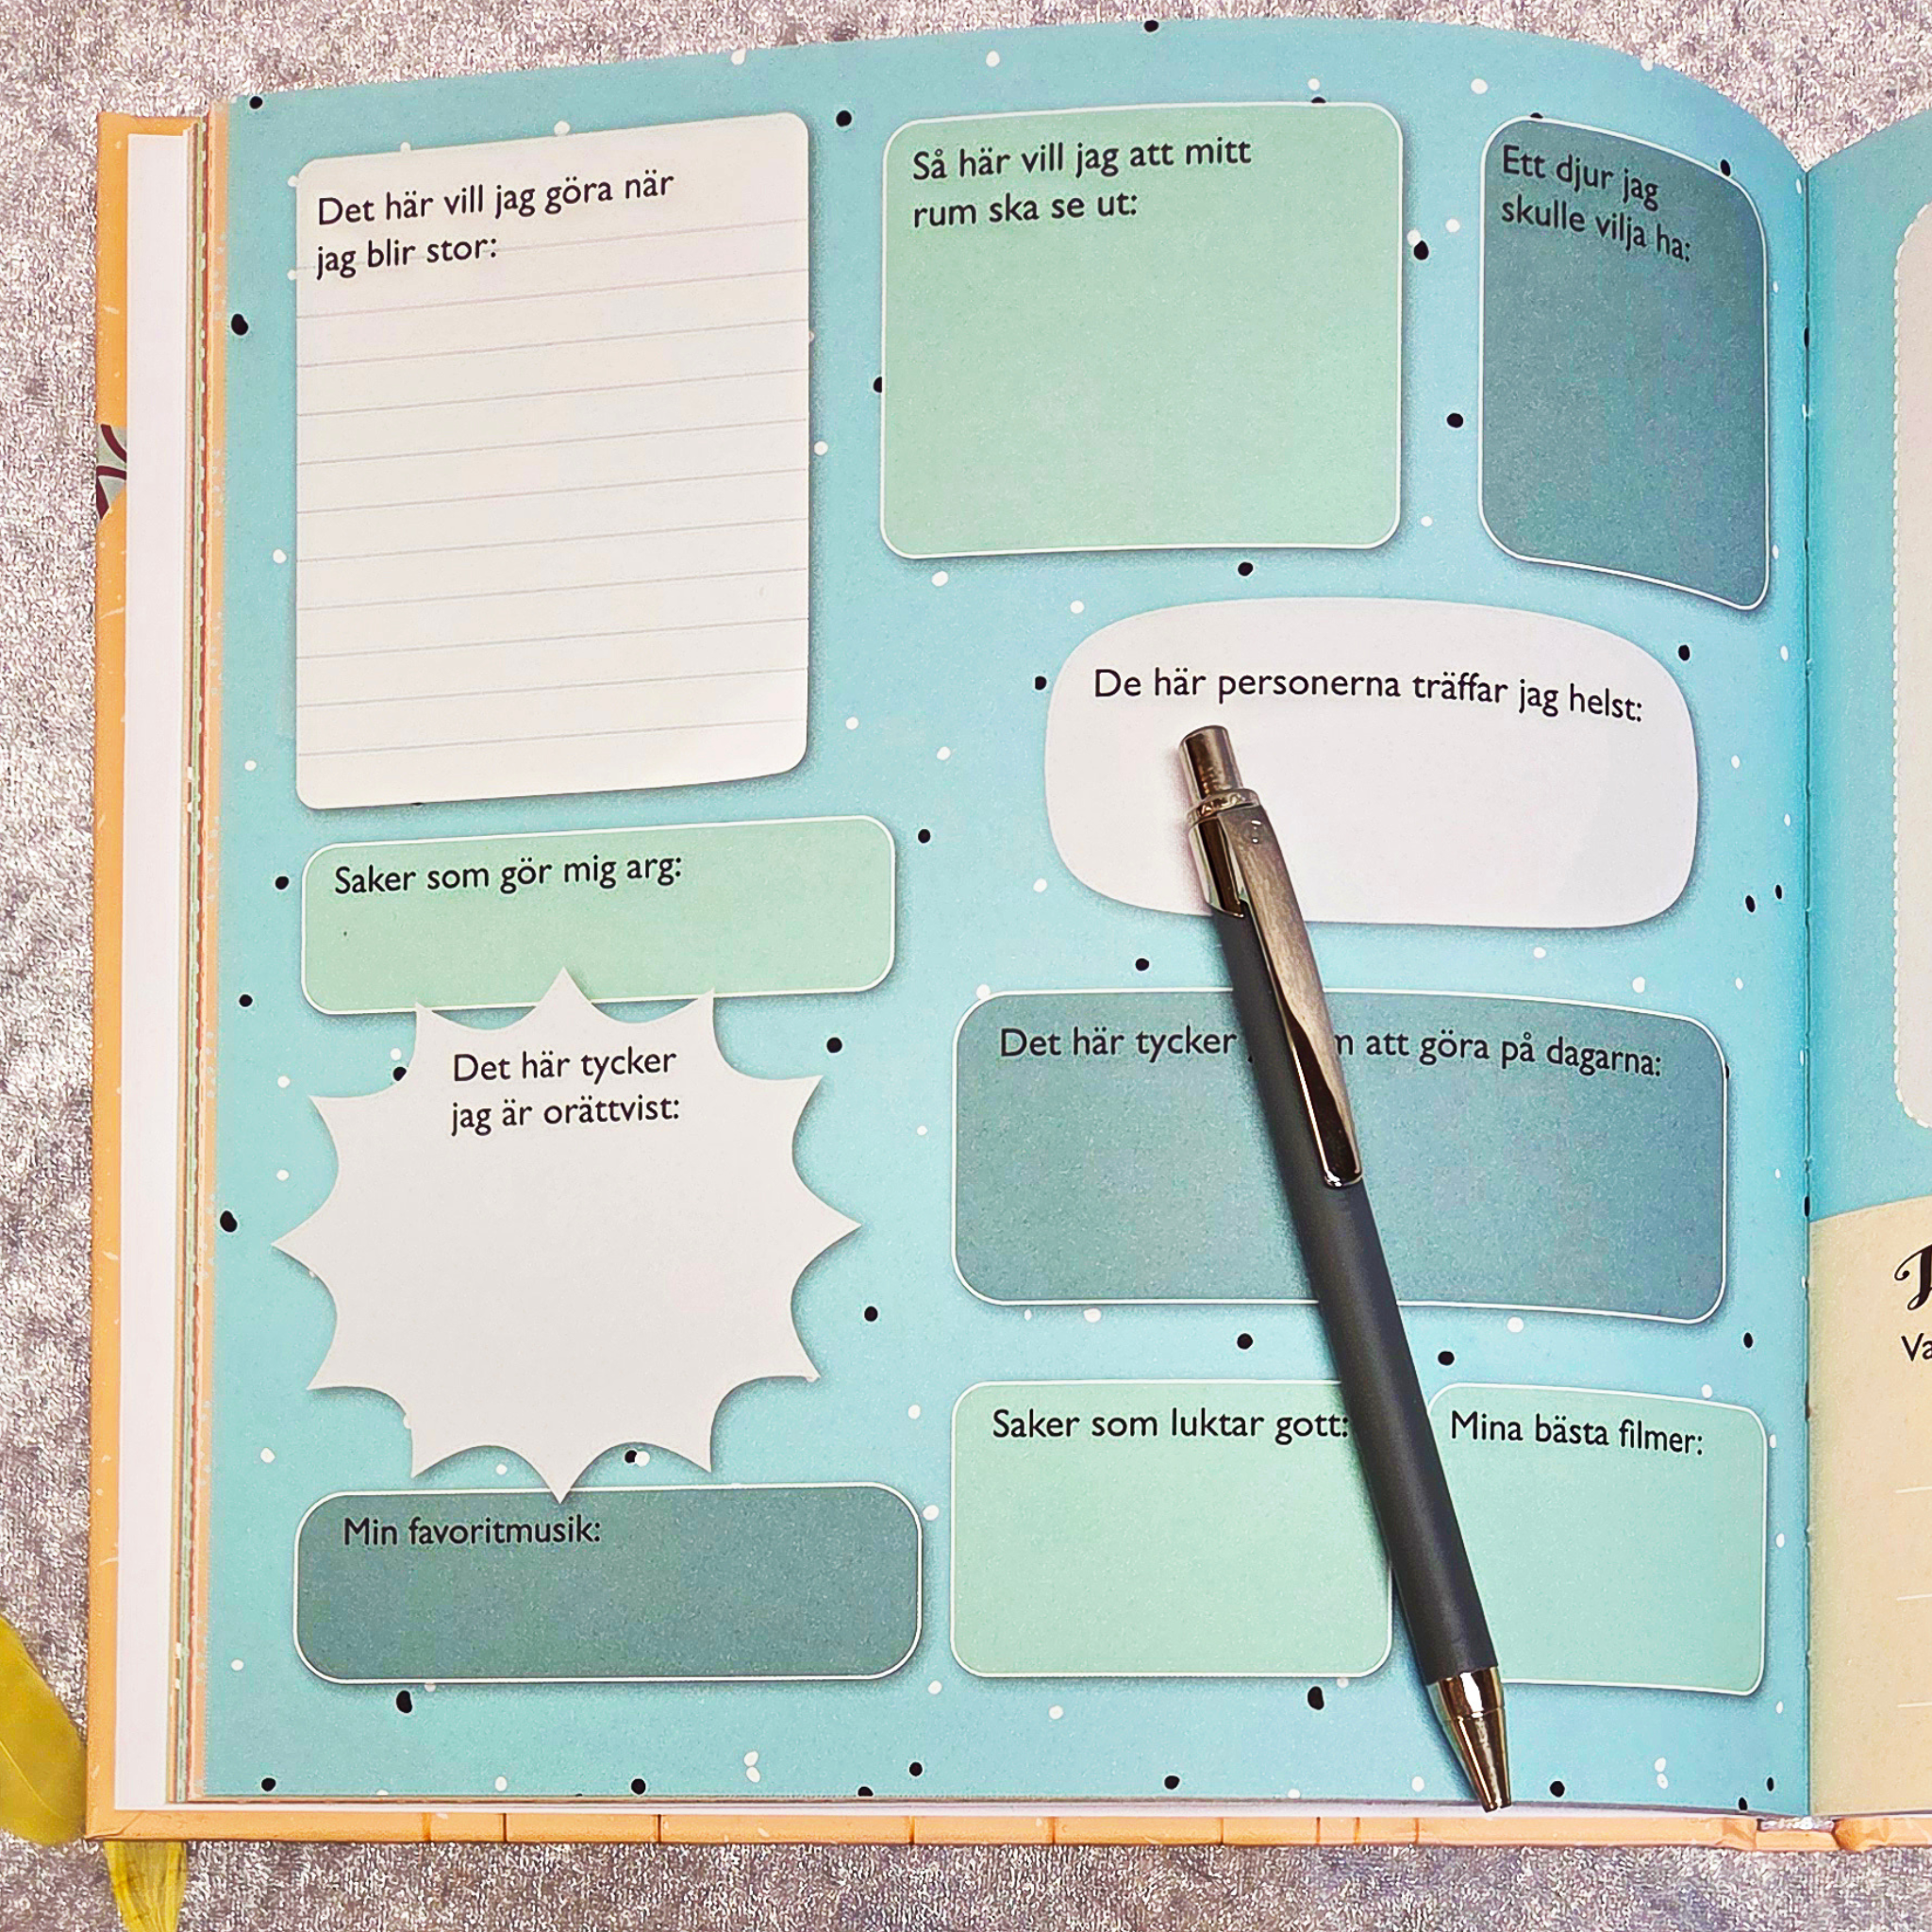 Det här vill jag göra när
jag blir stor:
Så här vill jag att mitt
rum ska se ut:
Ett djur jag
skulle vilja ha:
De här personerna träffar jag helst:
Saker som gör mig arg:
Det här tycker
jag är orättvist:
Det här tycker att göra på dagarna:
Min favoritmusik:
Saker som luktar gott:
Mina bästa filmer: